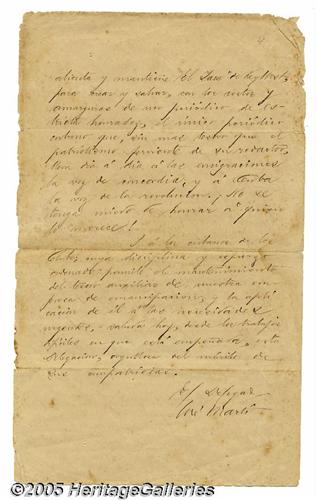 4
alienta y mantiene "El Yara" de Key West,
para crear y salvar, con los costos y
amarguras de un periódico de es-
tricta honradez, el único periódico
cubano que, sin mas tesoro que el
patriotismo de su redactor,
dia á dia á las emigraciones
la voz de concordia, y á Cuba
la voz de la revolucion. ¡No se
tenga miedo de honrar á quien
lo merece!
Y á los cubanos de los
Clubs, cuya disciplina y
ordenado permite el mantenimiento
del tesoro auxiliar de nuestra em-
presa de emancipacion, y la apli-
cacion de él á las necesidades
urgentes, saluda hoy, desde los trabajos
en que está empeñada, esta
Delegacion, orgullosa del mérito de
sus compatriotas.
El Delegado
José Martí
©2005 HeritageGalleries.com